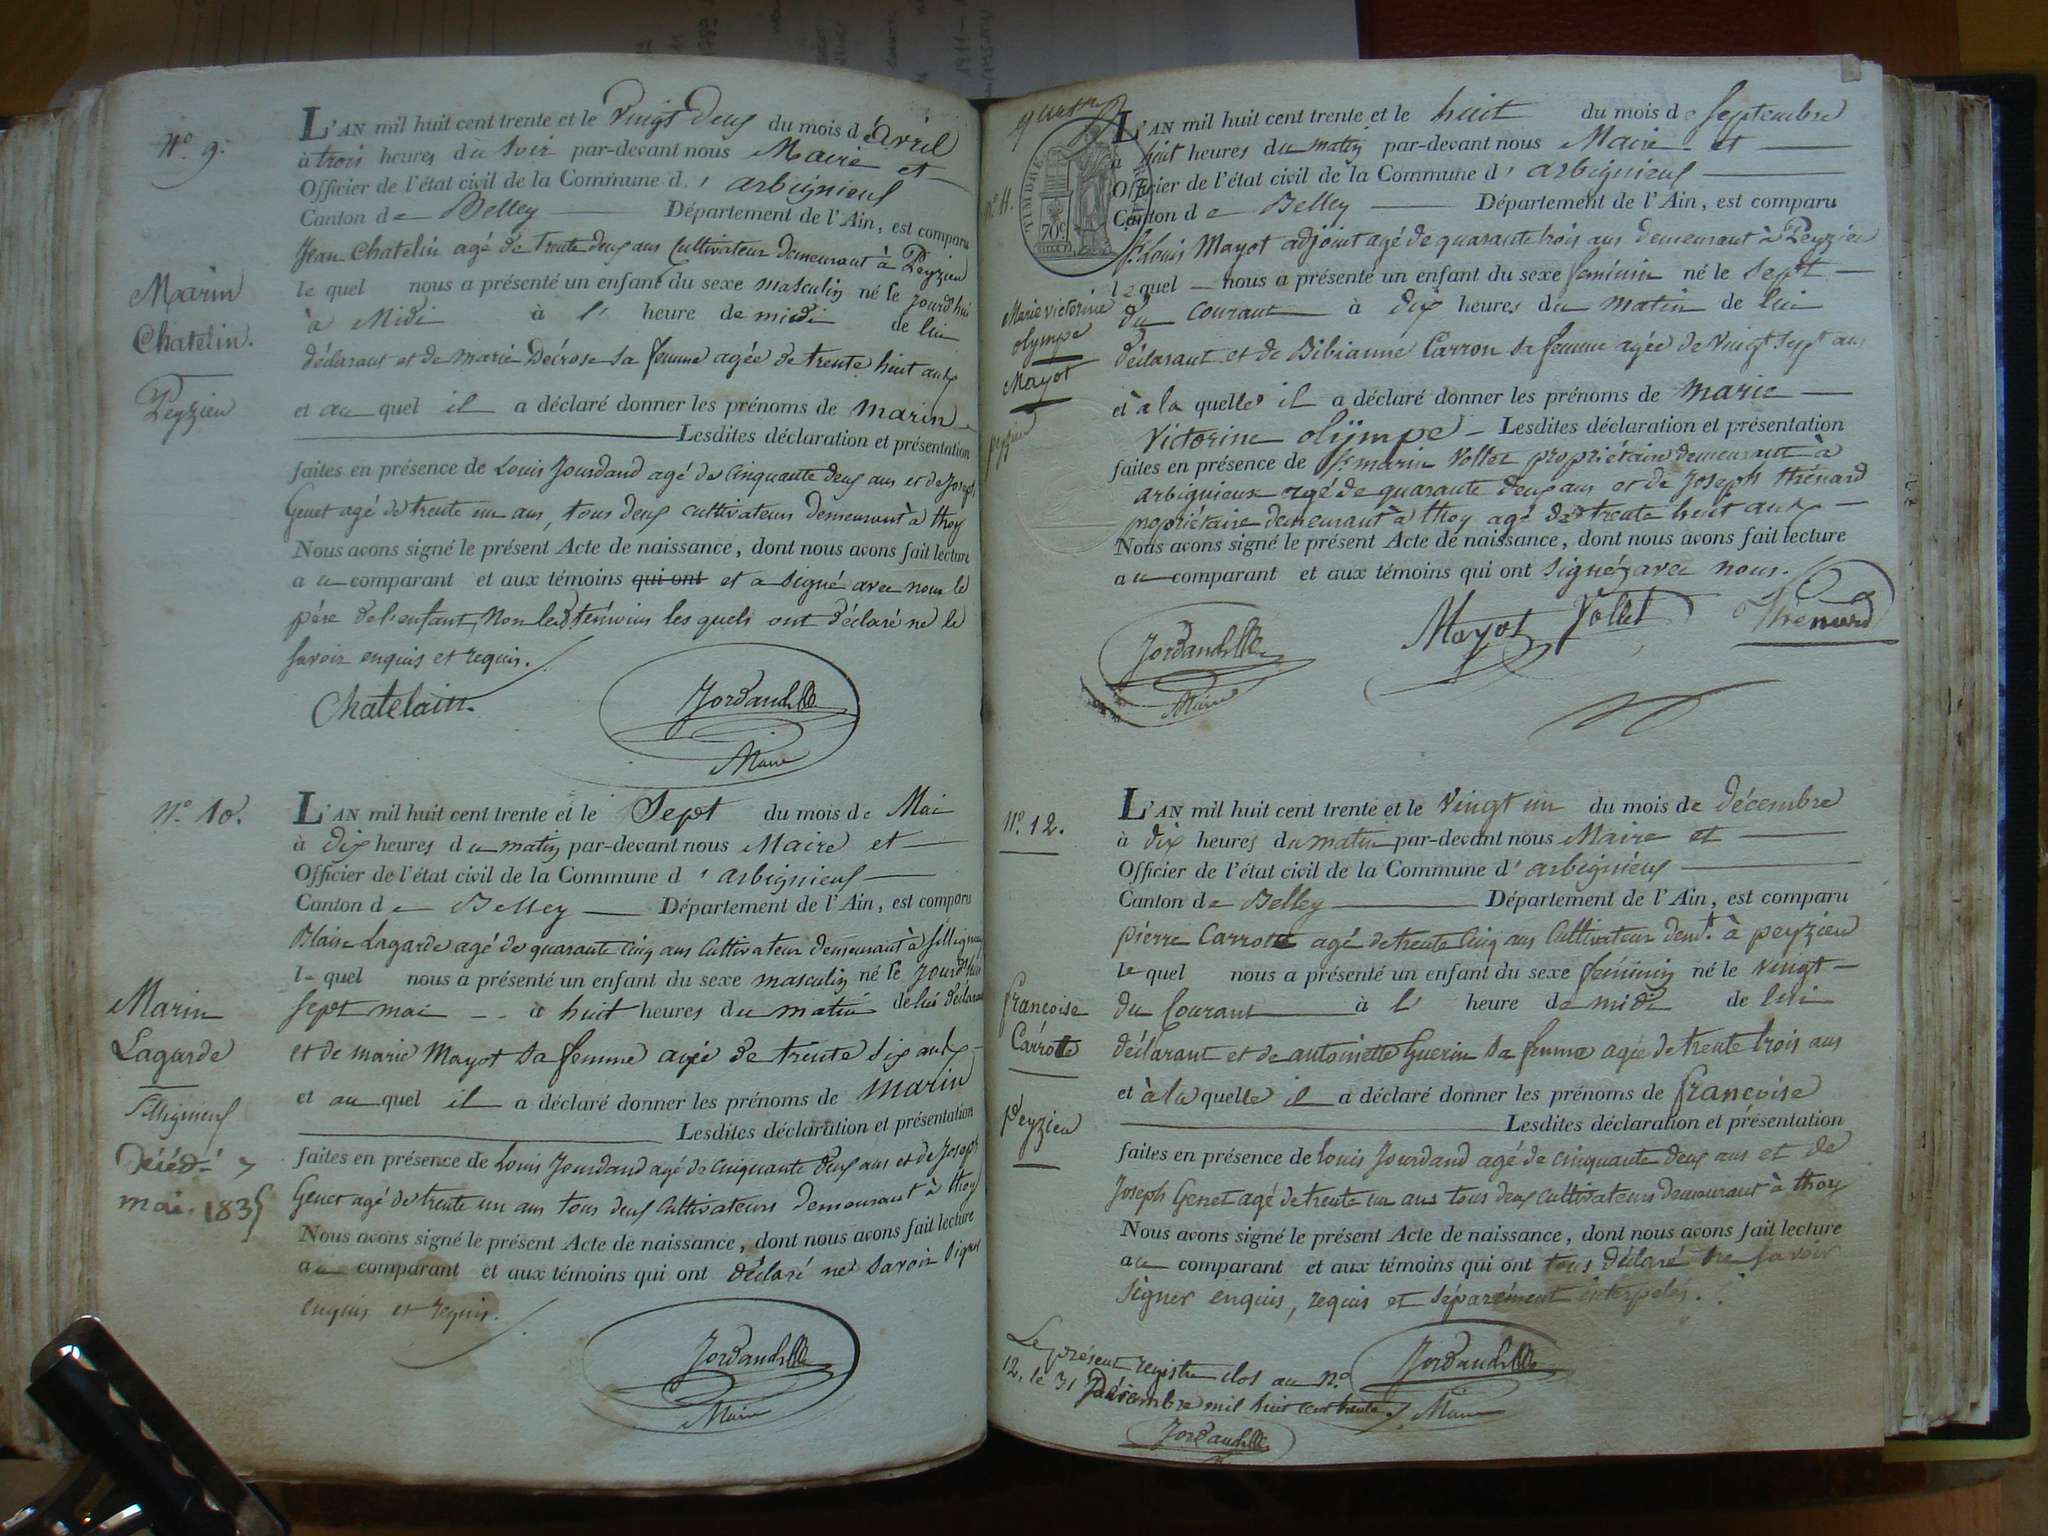 N.º 9.
Marin
Chatelin.
Peyzieu
L'AN mil huit cent trente et le Vingt deux du mois d'avril
à trois heures du Soir par-devant nous Maire et
Officier de l'état civil de la Commune d'arbignieux
Canton de Belley Département de l'Ain, est comparu
Jean Chatelin agé de trente deux ans Cultivateur demeurant à Peyzieu
le quel nous a présenté un enfant du sexe masculin né le jourd'hui
à Midi à l' heure de midi de lui
déclarant et de marie Decrose sa femme agée de trente huit ans
et au quel il a déclaré donner les prénoms de marin
Lesdites déclaration et présentation
faites en présence de Louis Jourdand agé de cinquante deux ans et de Joseph
Genet agé de trente un ans, tous deux cultivateurs demeurant à thoy
Nous avons signé le présent Acte de naissance, dont nous avons fait lecture
au comparant et aux témoins qui ont et a signé avec nous le
père de l'enfant, Non les témoins les quels ont déclaré ne le
savoir enquis et requis.
Chatelain
Jordand
Maire
N.º 10.
Marin
Lagarde
Sillignieux
Décédé 7
mai 1835
L'AN mil huit cent trente et le Sept du mois de Mai
à dix heures du matin par-devant nous Maire et
Officier de l'état civil de la Commune d'arbignieux
Canton de Belley Département de l'Ain, est comparu
Blaise Lagarde agé de quarante cinq ans Cultivateur demeurant à Sillignieux
le quel nous a présenté un enfant du sexe masculin né le jourd'hui
sept mai à huit heures du matin de lui déclarant
et de marie Mayot sa femme agée de trente six ans
et au quel il a déclaré donner les prénoms de marin
Lesdites déclaration et présentation
faites en présence de Louis Jourdand agé de cinquante deux ans et de Joseph
Genet agé de trente un ans tous deux Cultivateurs demeurant à thoy
Nous avons signé le présent Acte de naissance, dont nous avons fait lecture
au comparant et aux témoins qui ont déclaré ne savoir signer
enquis et requis.
Jordand
Maire
quatre
TIMBRE
70c
N.º 11.
Marie victorine
olympe
Mayot
peyzieu
L'AN mil huit cent trente et le huit du mois de Septembre
à huit heures du matin par-devant nous Maire et
Officier de l'état civil de la Commune d'arbignieux
Canton de Belley Département de l'Ain, est comparu
Sr Louis Mayot adjoint agé de quarante trois ans demeurant à Peyzieu
le quel nous a présenté un enfant du sexe feminin né le sept
du courant à dix heures du matin de lui
déclarant et de Bibianne Carron sa femme agée de Vingt sept ans
et à la quelle il a déclaré donner les prénoms de marie
Victorine olÿmpe Lesdites déclaration et présentation
faites en présence de Sr marin Vollet propriétaire demeurant à
arbignieux agé de quarante deux ans et de Joseph thénard
propriétaire demeurant à thoy agé de trente huit ans
Nous avons signé le présent Acte de naissance, dont nous avons fait lecture
au comparant et aux témoins qui ont signéz avec nous.
Jordand
Maire
Mayot
Vollet
Thenard
N.º 12.
françoise
Carrotte
Peyzieu
L'AN mil huit cent trente et le Vingt un du mois de décembre
à dix heures du matin par-devant nous Maire et
Officier de l'état civil de la Commune d'arbignieux
Canton de Belley Département de l'Ain, est comparu
pierre Carrotte agé de trente cinq ans Cultivateur demt. à peyzieu
le quel nous a présenté un enfant du sexe féminin né le vingt
du Courant à l' heure de midi de lui
déclarant et de antoinette Guerin sa femme agée de trente trois ans
et à la quelle il a déclaré donner les prénoms de françoise
Lesdites déclaration et présentation
faites en présence de louis Jourdand agé de cinquante deux ans et de
Joseph Genet agé de trente un ans tous deux cultivateurs demeurant à thoy
Nous avons signé le présent Acte de naissance, dont nous avons fait lecture
au comparant et aux témoins qui ont tous déclaré ne savoir
signer enquis, requis et séparément interpelés.
Jordand
Maire
Le présent registre clos au n.º
12, le 31 Décembre mil huit cent trente.
Jordand